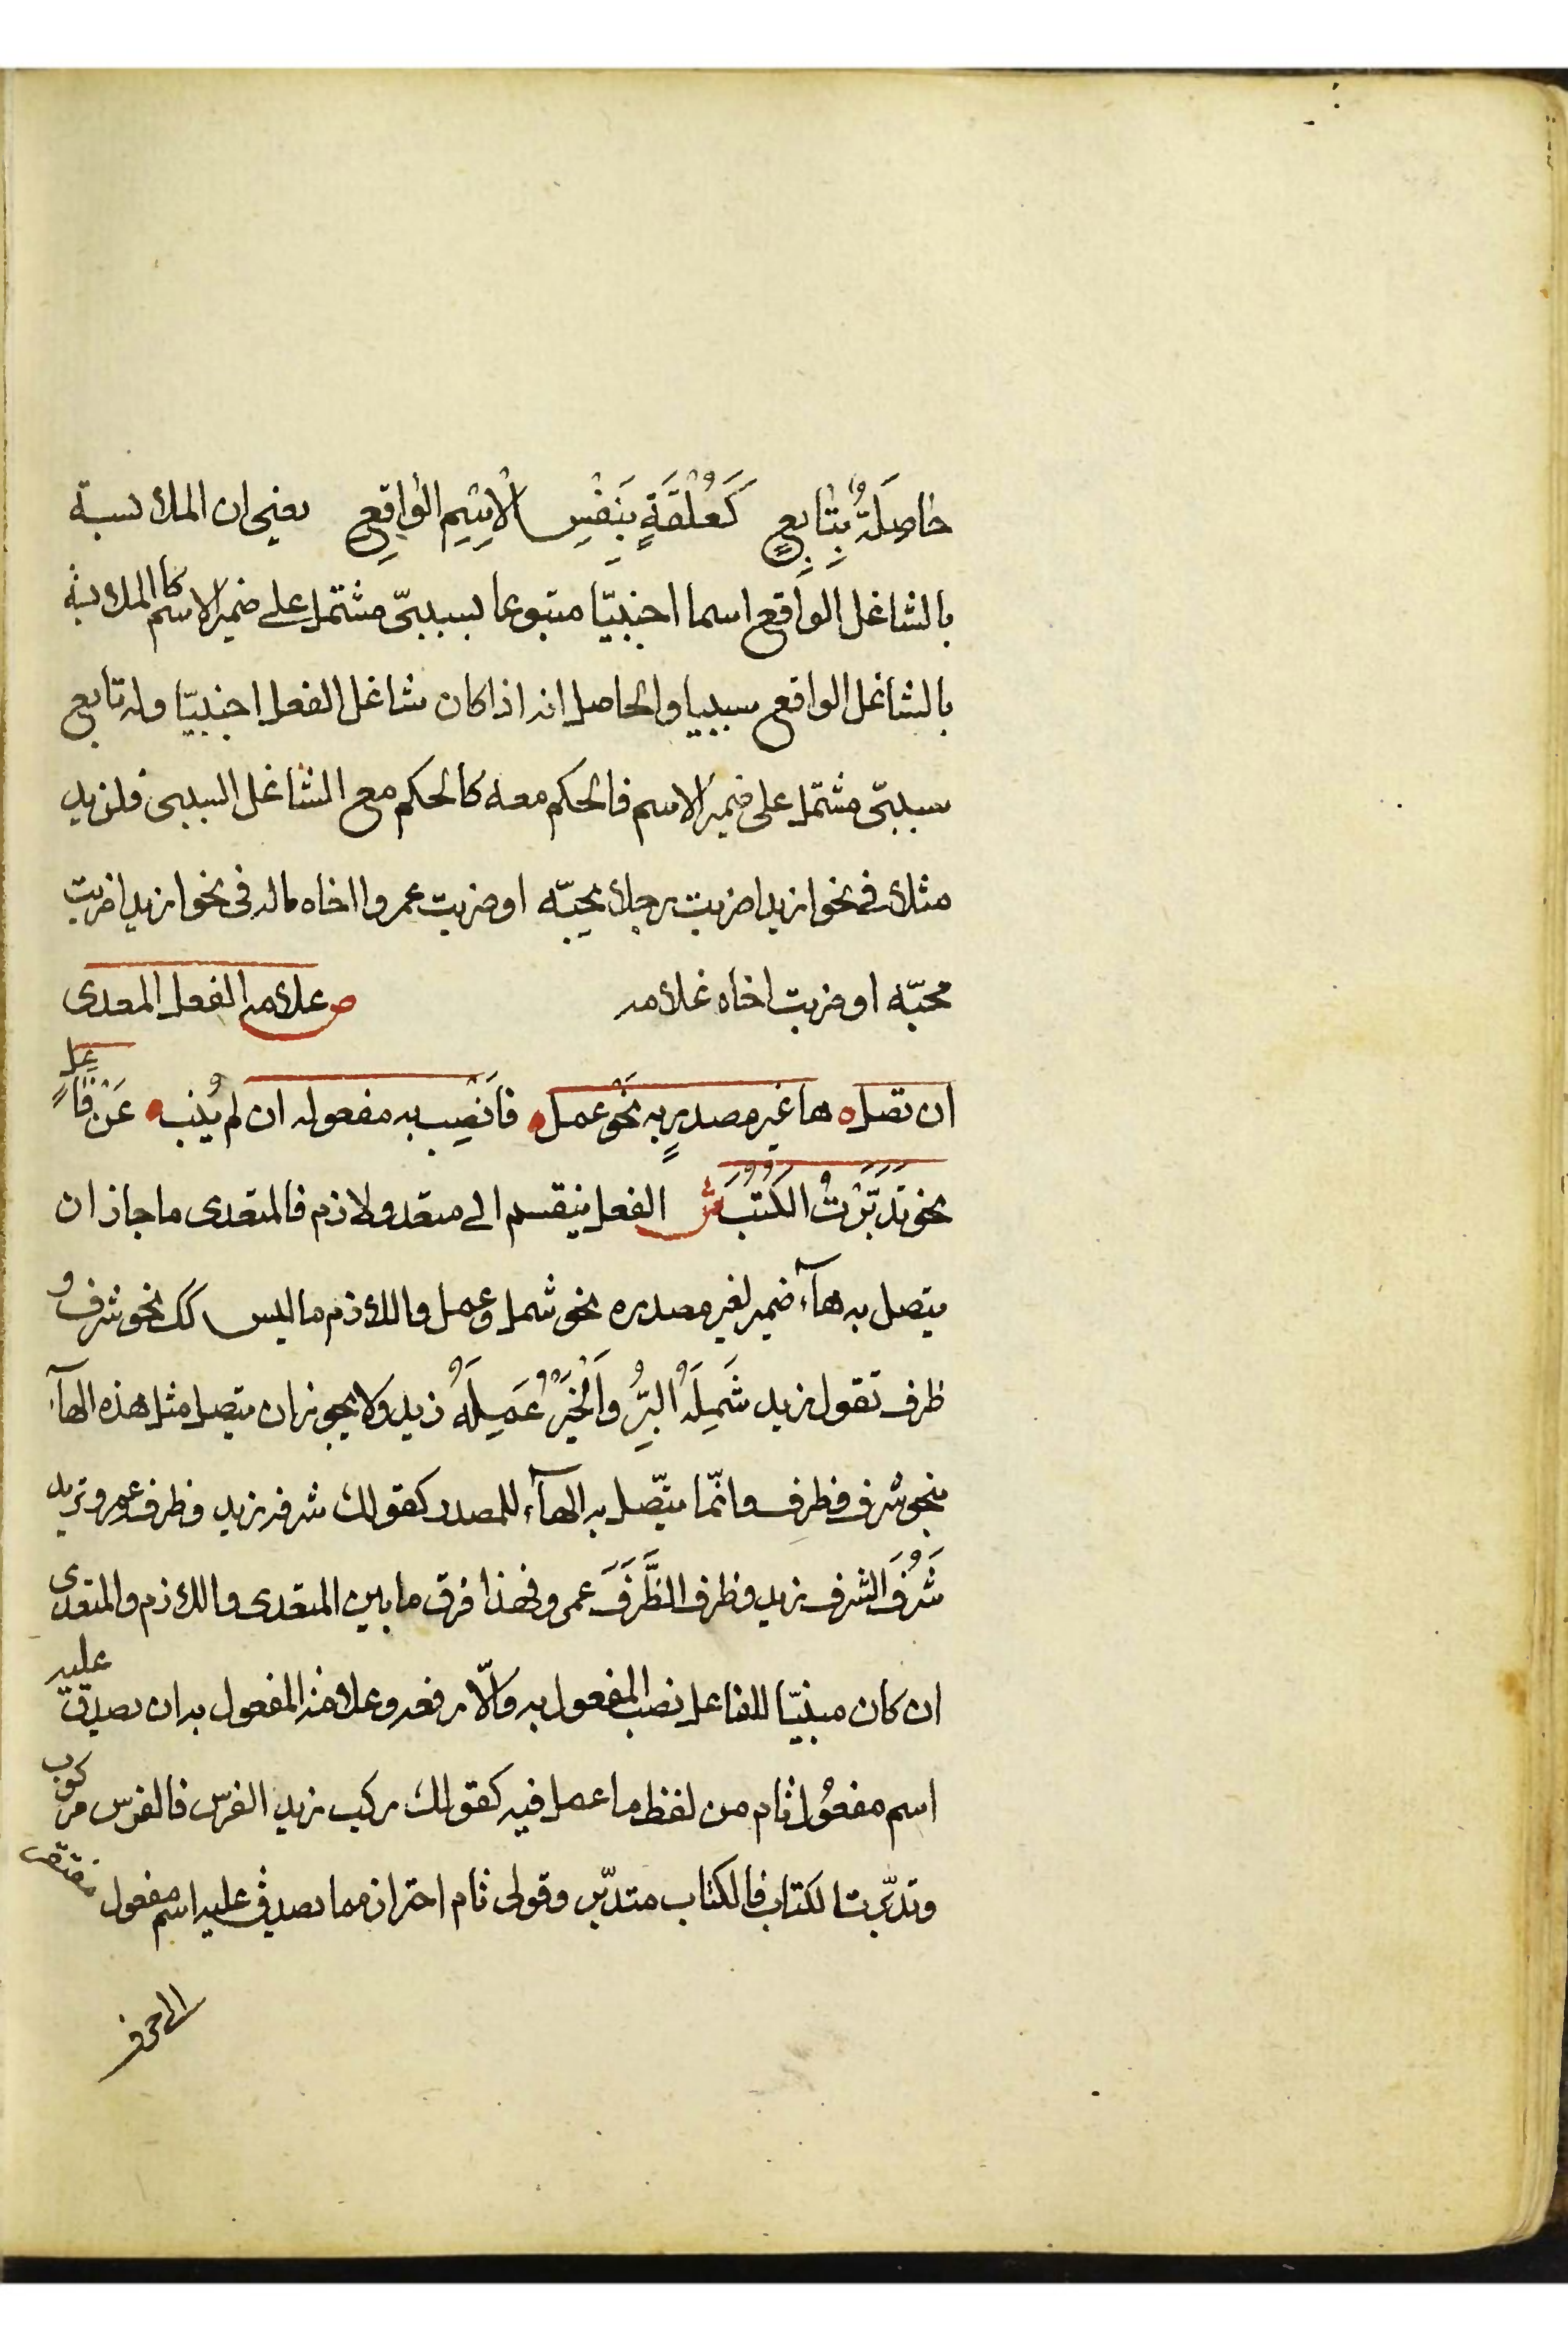 حَاصِلَةٌ بِتَابِعٍ كَعُلْقَةٍ بِنَفْسِ الْاِسْمِ الْوَاقِعِ يعني ان الملابسة
بالشاغل الواقع اسما اجنبيّا متبوعا بسببيّ مشتمل على ضمير الاسم كالملابسة
بالشاغل الواقع سببيا والحاصل انه اذا كان شاغل الفعل اجنبيّا وله تابع
سببيّ مشتمل على ضمير الاسم فالحكم معه كالحكم مع الشاغل السببى فلزيد
مثلا في نحو ازيدا ضربت رجلا يحبّه او ضربت عمروا اخاه ماله فى نحو ازيدا ضربت
محبّه او ضربت اخاه غلامه ص علامة الفعل المعدى
ان تصل ها غير مصدرٍ به نَحْو عمل فَانْصِب به مفعوله ان لم يُنب عَنْ فَاعِلٍ
نحو تَدَبَّرْتُ الكُتُبَ ش الفعل ينقسم الى متعد ولازم فالمتعدى ما جاز ان
يتصل به هآء ضمير لغير مصدره نحو شمل وعمل واللازم ما ليس كك نحو شرف و
ظرف تقول زيد شَمِلَهُ البِرُّ وَالْخَيْرُ عَمِلَهُ زيد ولا يجوز ان يتصل مثل هذه الهآء
بنحو شرف وظرف وانّما يتّصل به الهآء للمصدر كقولك شرفه زيد وظرفه عمرو تريد
شَرُفَ الشرف زيد وظرف الظَّرَفَ عمرو فهذا فرق ما بين المتعدى واللازم والمتعدى
ان كان مبنيّا للفاعل نصب المفعول به والّا رفعه وعلامة المفعول به ان يصدق عليه
اسم مفعول تام من لفظ ما عمل فيه كقولك ركب زيد الفرس فالفرس مركوب
وتدبّرت الكتاب فالكتاب متدبّر وقولى تام احتراز مما يصدق عليه اسم مفعول مفتقر
الى حرف